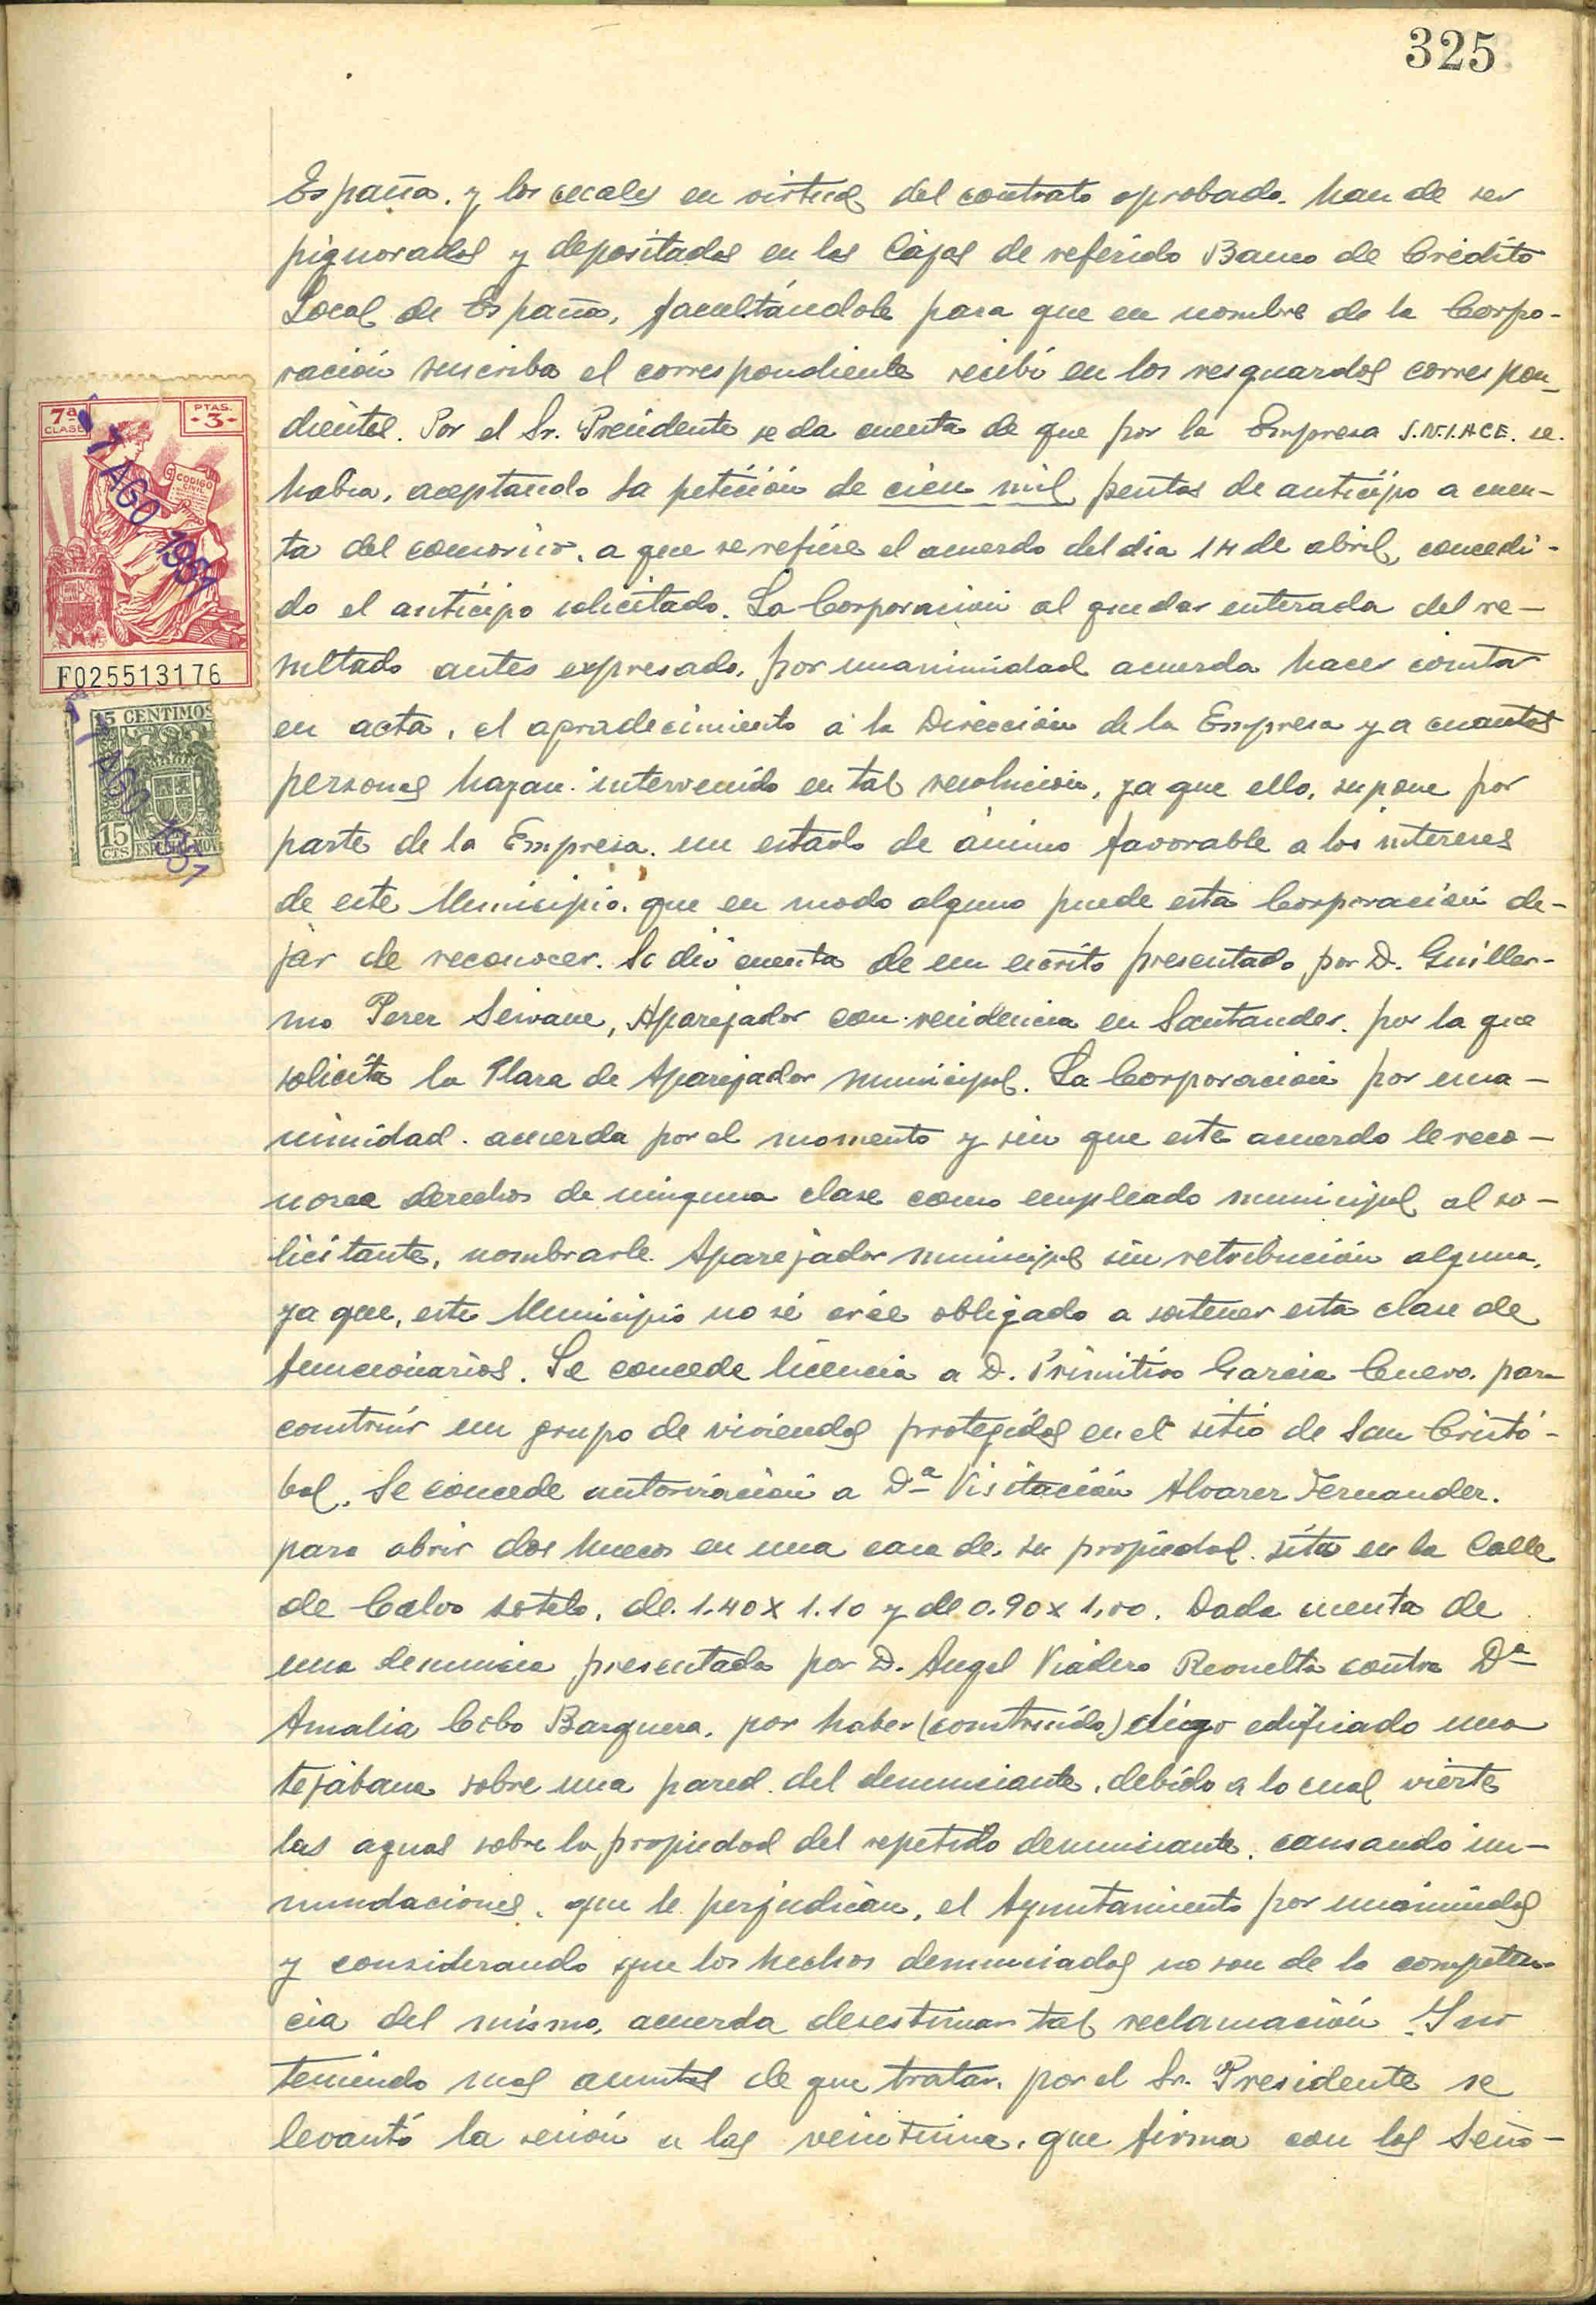 325
España, y los cuales en virtud del contrato aprobado han de ser
pignorados y depositados en las Cajas de referido Banco de Crédito
Local de España, facultándole para que en nombre de la Corpo-
ración suscriba el correspondiente recibí en los resguardos correspon-
dientes. Por el Sr. Presidente se da cuenta de que por la Empresa S.N.I.A.C.E. se
habia, aceptando la petición de cien mil pesetas de anticipo a cuen-
ta del consorcio, a que se refiere el acuerdo del dia 14 de abril, concedi-
do el anticipo solicitado. La Corporación al quedar enterada del re-
sultado antes expresado, por unanimidad acuerda hacer constar
en acta, el agradecimiento a la Dirección de la Empresa y a cuantas
personas hayan intervenido en tal resolución, ya que ello, supone por
parte de la Empresa un estado de ánimo favorable a los intereses
de este Municipio, que en modo alguno puede esta Corporación de-
jar de reconocer. Se dio cuenta de un escrito presentado por D. Guiller-
mo Perez Seivane, Aparejador con residencia en Santander, por la que
solicita la Plaza de Aparejador municipal. La Corporación por una-
nimidad acuerda por el momento y sin que este acuerdo le reco-
nozca derechos de ninguna clase como empleado municipal al so-
licitante, nombrarle Aparejador municipal sin retribución alguna,
ya que, este Municipio no sé crée obligado a sostener esta clase de
funcionarios. Se concede licencia a D. Primitivo Garcia Cuevo, para
construir un grupo de viviendas protegidas en el sitio de San Cristó-
bal. Se concede autorización a Dª Visitación Alvarez Fernandez.
para abrir dos huecos en una casa de su propiedad sita en la Calle
de Calvo Sotelo, de 1.40 x 1.10 y de 0.90 x 1,00. Dada cuenta de
una denuncia presentada por D. Angel Viadero Revuelta contra Dª
Amalia Cobo Barquera, por haber (construido) digo edificado una
tejabana sobre una pared del denunciante, debido a lo cual vierte
las aguas sobre la propiedad del repetido denunciante, causando in-
nundaciones, que le perjudican, el Ayuntamiento por unanimidad
y considerando que los hechos denunciados no son de la competen-
cia del mismo, acuerda desestimar tal reclamación. Y no
teniendo mas asuntos de que tratar, por el Sr. Presidente se
levantó la sesión a las veintiuna, que firma con los Seño-
7ª
CLASE
PTAS.
-3-
CODIGO
CIVIL
7 AGO 1951
F025513176
15 CENTIMOS
7 AGO 1951
15
CTS